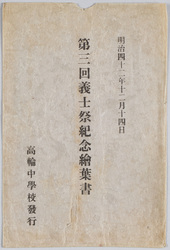 明治四十二年十二月十四日
第三回義士祭紀念繪葉書
高輪中學校發行